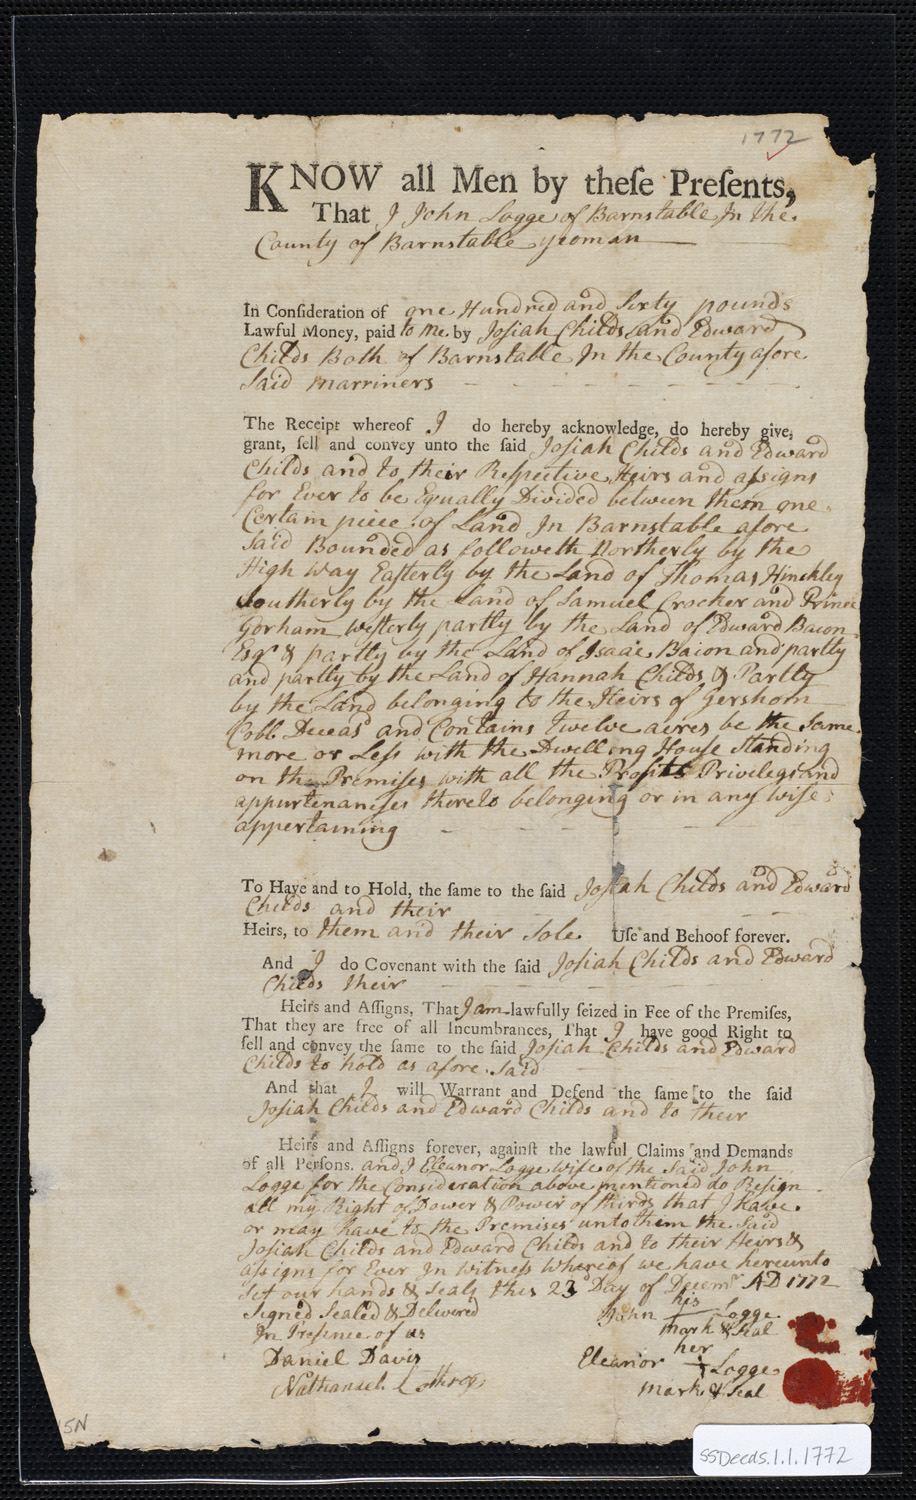 1772
KNOW all Men by theſe Preſents,
That I John Logge of Barnstable In the
County of Barnstable yeoman
In Conſideration of one Hundred and Sixty pounds
Lawful Money, paid to me by Josiah Childs and Edward
Childs Both of Barnstable In the County afore
Said Marriners
The Receipt whereof I do hereby acknowledge, do hereby give,
grant, ſell and convey unto the ſaid Josiah Childs and Edward
Childs and to their Respective Heirs and assigns
for Ever to be Equally Divided between them one
Certain piece of Land In Barnstable afore
Said Bounded as followeth Northerly by the
High Way Easterly by the Land of Thomas Hinckley
Southerly by the Land of Samuel Crocker and Prince
Gorham Westerly partly by the Land of Edward Bacon
Esqr & partly by the Land of Isaac Bacon and partly
and partly by the Land of Hannah Childs & Partly
by the Land belonging to the Heirs of Gershom
Cobb Deceasd and Contains twelve acres be the Same
more or Less with the Dwelling House Standing
on the Premises with all the Profits Privileges and
appurtenanses thereto belonging or in any wise
appertaining
To Have and to Hold, the ſame to the ſaid Josiah Childs and Edward
Childs and their
Heirs, to them and their Sole Uſe and Behoof forever.
And I do Covenant with the ſaid Josiah Childs and Edward
Childs their
Heirs and Aſſigns, That I am lawfully ſeized in Fee of the Premiſes,
That they are free of all Incumbrances, That I have good Right to
ſell and convey the ſame to the ſaid Josiah Childs and Edward
Childs to hold as afore Said
And that I will Warrant and Defend the ſame to the ſaid
Josiah Childs and Edward Childs and to their
Heirs and Aſſigns forever, againſt the lawful Claims and Demands
of all Perſons. and I Eleanor Logge wife of the Said John
Logge for the Consideration above mentioned do Resign
all my Right of Dower & Power of thirds that I have
or may have to the Premises unto them the Said
Josiah Childs and Edward Childs and to their Heirs &
assigns for Ever In Witness Whereof we have hereunto
Set our hands & Seals this 23d Day of Decemr AD 1772
Signed Sealed & Delivered
In Presence of us
Daniel Davis
Nathaniel Lothrop
his
John Logge
mark & Seal
her
Eleanor Logge
mark & Seal
15N
SSDeeds.1.1.1772